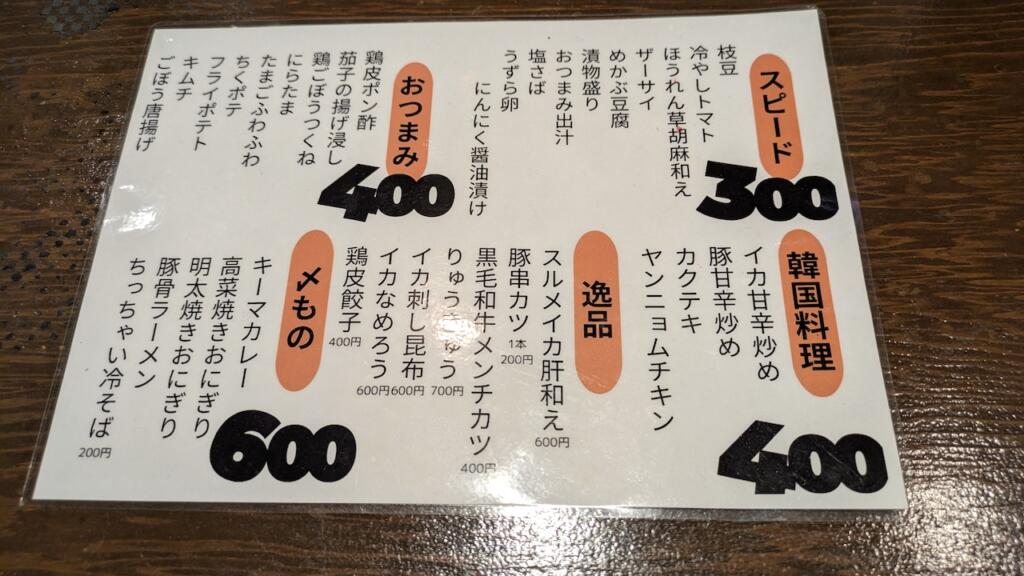 スピード
300
枝豆
冷やしトマト
ほうれん草胡麻和え
ザーサイ
めかぶ豆腐
漬物盛り
おつまみ出汁
塩さば
うずら卵
にんにく醤油漬け
おつまみ
400
鶏皮ポン酢
茄子の揚げ浸し
鶏ごぼうつくね
にらたま
たまごふわふわ
ちくポテ
フライポテト
キムチ
ごぼう唐揚げ
韓国料理
400
イカ甘辛炒め
豚甘辛炒め
カクテキ
ヤンニョムチキン
逸品
スルメイカ肝和え 600円
豚串カツ 1本 200円
黒毛和牛メンチカツ 400円
りゅうきゅう 700円
イカ刺し昆布 600円
イカなめろう 600円
鶏皮餃子 400円
〆もの
600
キーマカレー
高菜焼きおにぎり
明太焼きおにぎり
豚骨ラーメン
ちっちゃい冷そば 200円